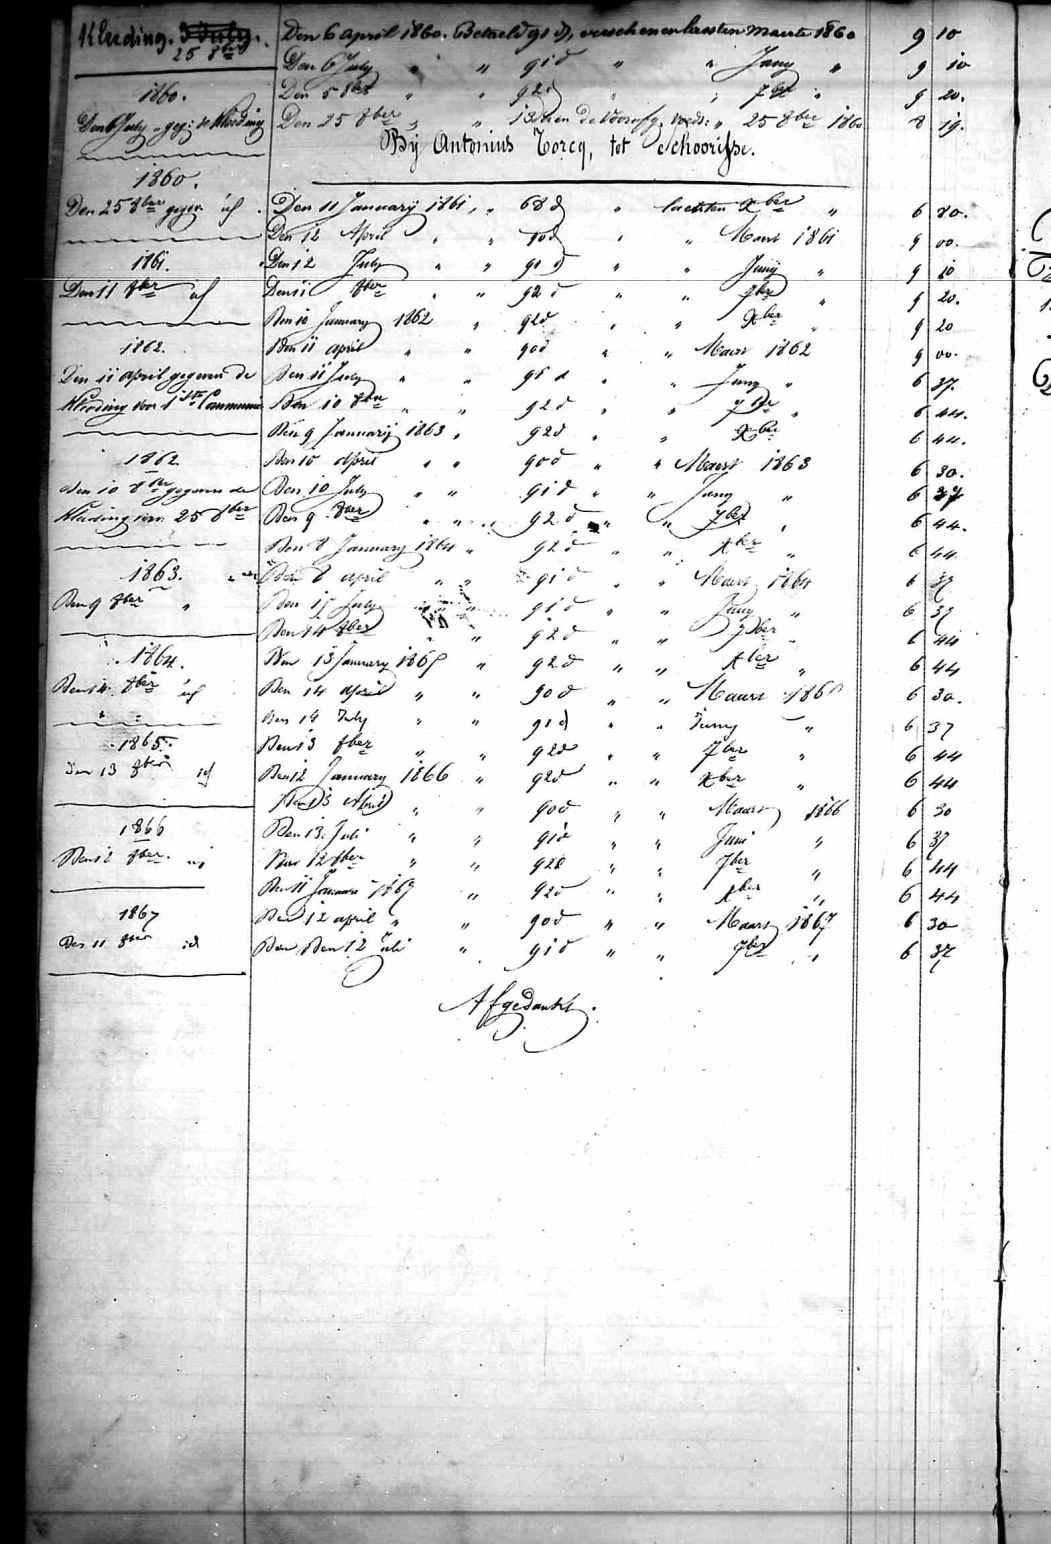 Kleeding. 3 July.
25 8ber
Den 6 april 1860. Betaeld 91 d, verschenen laesten Maerte 1860 9 10
Den 6 July " " 91 d " " Juny " 9 10
1860.
Den 5 8ber " " 92 d " " 7ber " 9 20.
Den 6 July gegev: de Kleeding
Den 25 8ber " " 25 8ber 1860 8 19.
Bij Antonius Torcq, tot Schoorisse.
1860.
Den 25 8ber gegev. id.
Den 11 January 1861, " 68 d " laesten Xber " 6 80.
Den 12 April " " 90 d " " Maert 1861 9 00.
1861.
Den 12 July " " 91 d " " Junij " 9 10
Den 11 8ber id
Den 11 8ber " " 92 d " " 7ber " 9 20.
Den 10 January 1862 " 92 d " " Xber " 9 20
1862.
Den 11 april " " 90 d " " Maert 1862 9 00.
Den 11 april gegeven de
Den 11 July " " 91 d " " Juny " 6 37.
Kleeding voor 1ste Communie
Den 10 8ber " " 92 d " " 7ber " 6 44.
Den 9 Januarij 1863 " 92 d " " Xber 6 44.
1862
Den 10 april " " 90 d " " Maert 1863 6 30.
den 10 8ber gegeven de
Den 10 July " " 91 d " " Juny " 6 37
Kleeding 25 8ber
Den 9 8ber " " 92 d " " 7ber " 6 44.
Den 8 January 1864 " 92 d " " Xber " 6 44
1863.
Den 8 april " " 91 d " " Maert 1864 6 37
Den 9 8ber "
Den 15 July " " 91 d " " Juny " 6 37
Den 14 8ber " " 92 d " " 7ber " 6 44
1864.
Den 13 January 1865 " 92 d " " Xber " 6 44
Den 14 8ber id
Den 14 april " " 90 d " " Maart 1865 6 30.
Den 14 July " " 91 d " " Juny " 6 37
1865.
Den 13 8ber " " 92 d " " 7ber " 6 44
Den 13 8ber id
Den 12 January 1866 " 92 d " " Xber " 6 44
Den 13 April " " 90 d " " Maart 1866 6 30
1866
Den 13 Juli " " 91 d " " Juni " 6 37
Den 12 8ber. id
Den 12 8ber " " 92 d " " 7ber " 6 44
Den 11 Januari 1867 " 92 d " " Xber " 6 44
1867
Den 12 april " " 90 d " " Maart 1867 6 30
Des 11 8ber id
Den Den 12 Juli " 91 d " " 7ber " 6 37
Afgedankt.